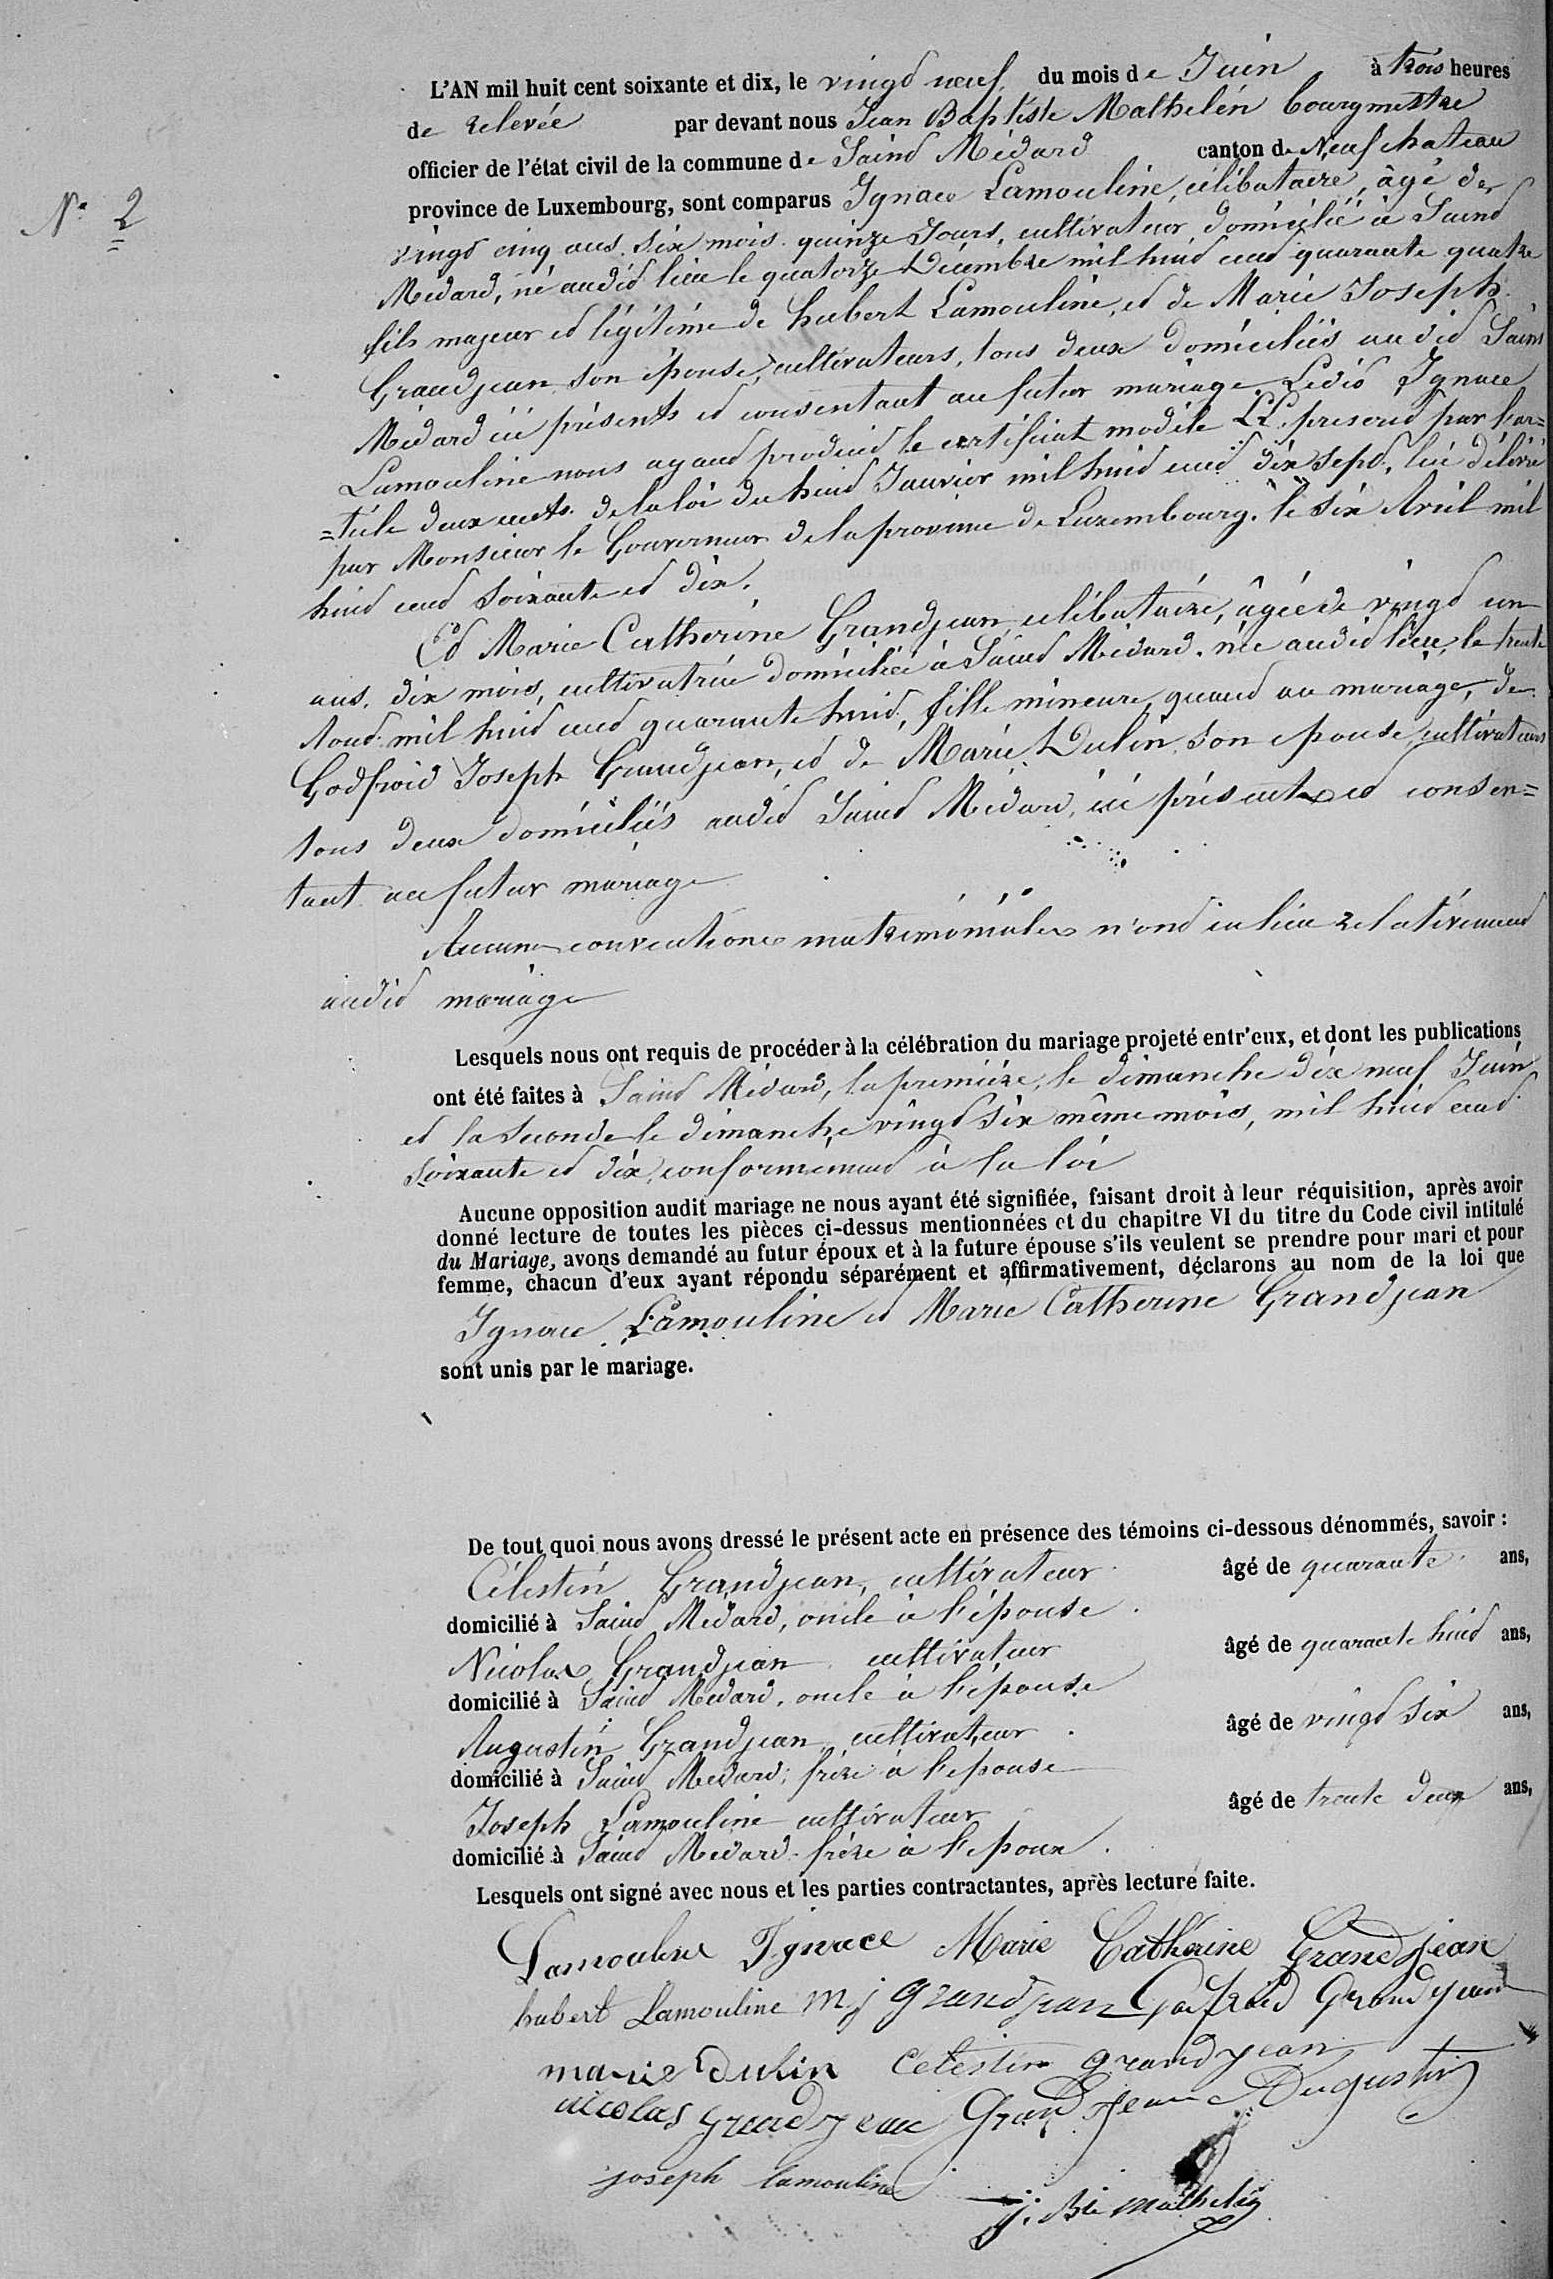 N° 2
L'AN mil huit cent soixante et dix, le vingt neuf du mois de Juin à trois heures
de relevée par devant nous Jean Baptiste Mathelin bourgmestre
officier de l'état civil de la commune de Saint Médard canton de Neufchateau
province de Luxembourg, sont comparus Ignace Lamouline, célibataire, âgé de
vingt cinq ans six mois quinze Jours, cultivateur domicilié à Saint
Médard, né audit lieu le quatorze Décembre mil huit cent quarante quatre
fils majeur et légitime de hubert Lamouline, et de Marie Joseph
Grandjean son épouse, cultivateurs, tous deux domiciliés audit Saint
Médard ici présents et consentant au futur mariage. Ledit Ignace
Lamouline nous ayant produit le certificat modèle LL. prescrit par l'ar=
=ticle deux cents de la loi du huit Janvier mil huit cent dix sept, lui délivré
par Monsieur le Gouverneur de la province de Luxembourg, le six Avril mil
huit cent soixante et dix.
Et Marie Catherine Grandjean, célibataire, âgée de vingt un
ans, dix mois, cultivatrice domiciliée à Saint Médard, née audit lieu, le trente
Aout mil huit cent quarante huit, fille mineure, quant au mariage, de
Godfroid Joseph Grandjean, et de Marie Dulin, son épouse, cultivateurs
tous deux domiciliés audit Saint Médard, ici présents et consen=
tant au futur mariage
Aucunes conventions matrimoniales n'ont eu lieu relativement
audit mariage
Lesquels nous ont requis de procéder à la célébration du mariage projeté entr'eux, et dont les publications
ont été faites à Saint Médard, la première, le dimanche dix neuf Juin
et la seconde le dimanche vingt six même mois, mil huit cent
soixante et dix, conformément à la loi
Aucune opposition audit mariage ne nous ayant été signifiée, faisant droit à leur réquisition, après avoir
donné lecture de toutes les pièces ci-dessus mentionnées et du chapitre VI du titre du Code civil intitulé
du Mariage, avons demandé au futur époux et à la future épouse s'ils veulent se prendre pour mari et pour
femme, chacun d'eux ayant répondu séparément et affirmativement, déclarons au nom de la loi que
Ignace Lamouline et Marie Catherine Grandjean
sont unis par le mariage.
De tout quoi nous avons dressé le présent acte en présence des témoins ci-dessous dénommés, savoir :
Célestin Grandjean, cultivateur âgé de quarante ans,
domicilié à Saint Médard, oncle à l'épouse
Nicolas Grandjean cultivateur âgé de quarante huit ans,
domicilié à Saint Médard, oncle à l'épouse
Augustin Grandjean cultivateur âgé de vingt six ans,
domicilié à Saint Médard, frère à l'épouse
Joseph Lamouline cultivateur âgé de trente deux ans,
domicilié à Saint Médard frère à l'époux
Lesquels ont signé avec nous et les parties contractantes, après lecture faite.
Lamouline Ignace Marie Catherine Grandjean
hubert Lamouline M j grandjean Godfroid Grandjean
marie Dulin Celestin grandjean
nicolas grandjean Grandjean Augustin
joseph lamouline
j. Bte Mathelin